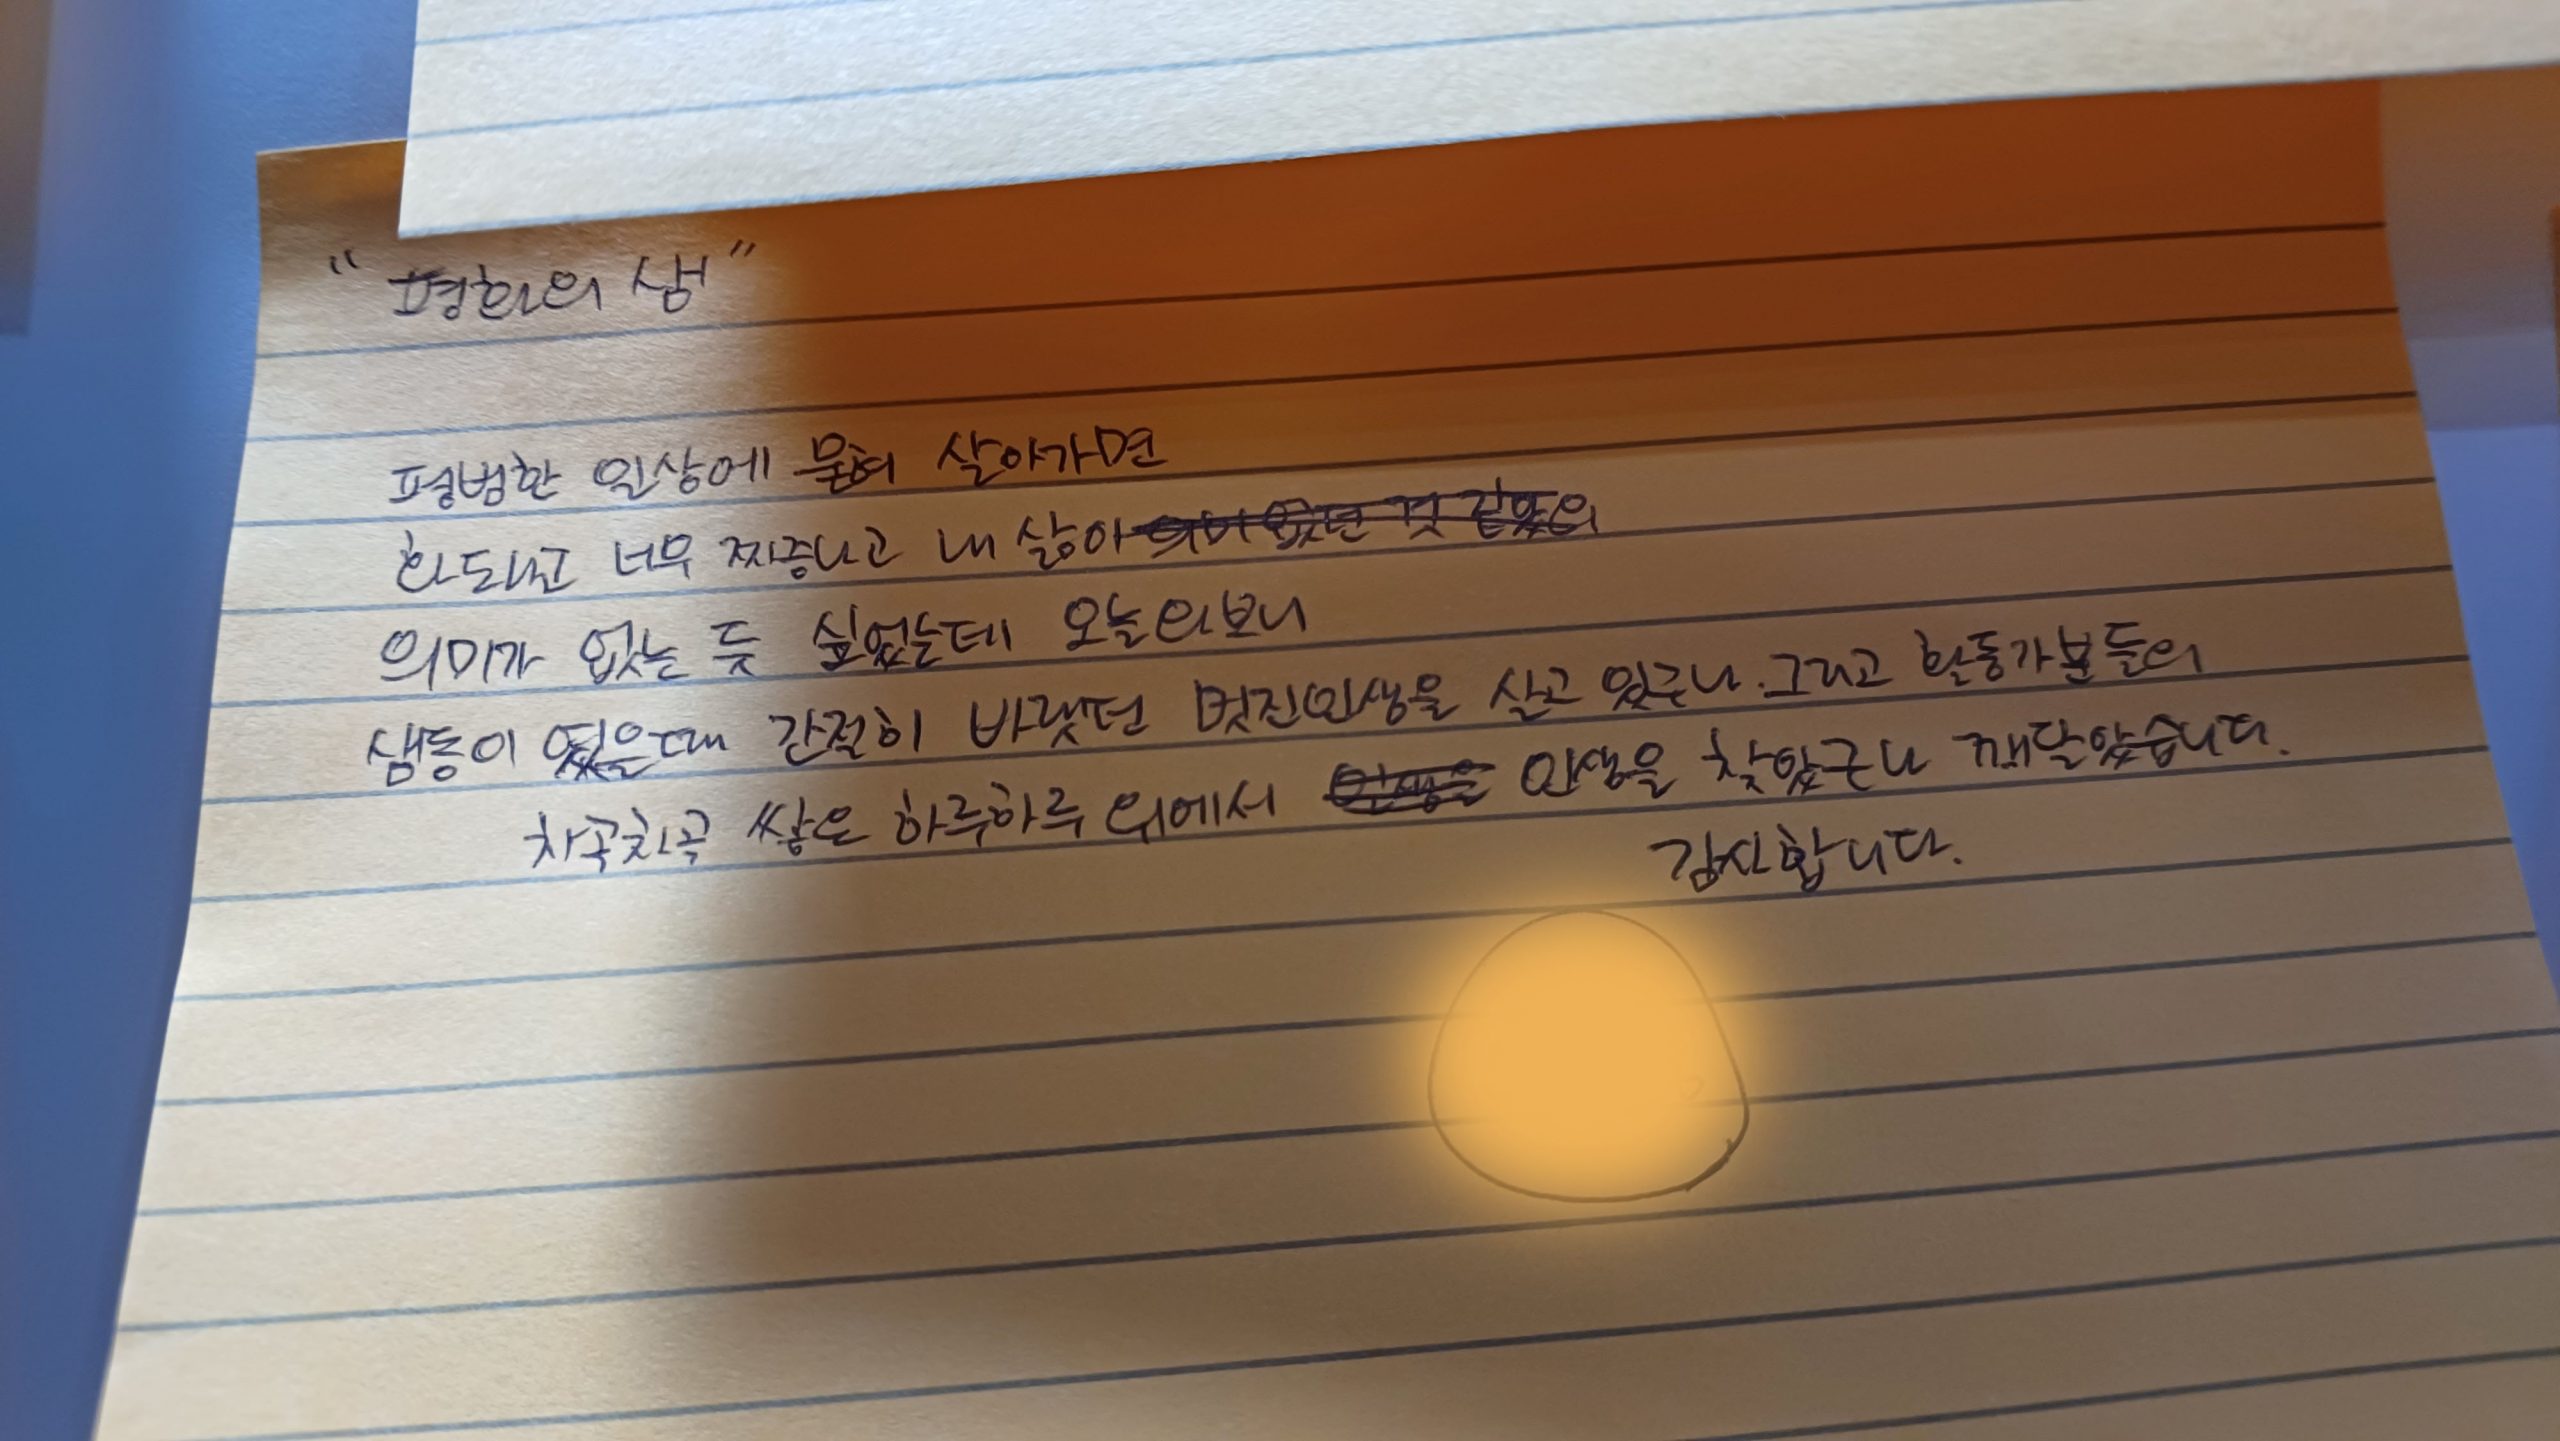 "평화의 샘"
평범한 일상에 묻혀 살아가면
화도나고 너무 짜증나고 내 삶이 의미 없던 것 같았의
의미가 없는 듯 싶었는데 오늘와보니
샘동이 였을때 간절히 바랬던 멋진인생을 살고 있구나. 그리고 활동가분들의
차곡차곡 쌓은 하루하루 위에서 인생을 인생을 찾았구나 깨달았습니다.
감사합니다.